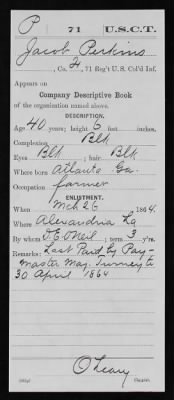 P 71 U.S.C.T.
Jacob Perkins
, Co. H, 71 Reg't U.S. Col'd Inf.
Appears on
Company Descriptive Book
of the organization named above.
DESCRIPTION.
Age 40 years; height 6 feet inches.
Complexion Blk
Eyes Blk; hair Blk
Where born Atlanta Ga.
Occupation farmer
ENLISTMENT.
When Mch 26, 1864.
Where Alexandria La
By whom D.E. O'Neil; term 3 y'rs.
Remarks: Last Paid by Pay-
master Maj. Turney to
30 April 1864
O'Leary
Copyist.